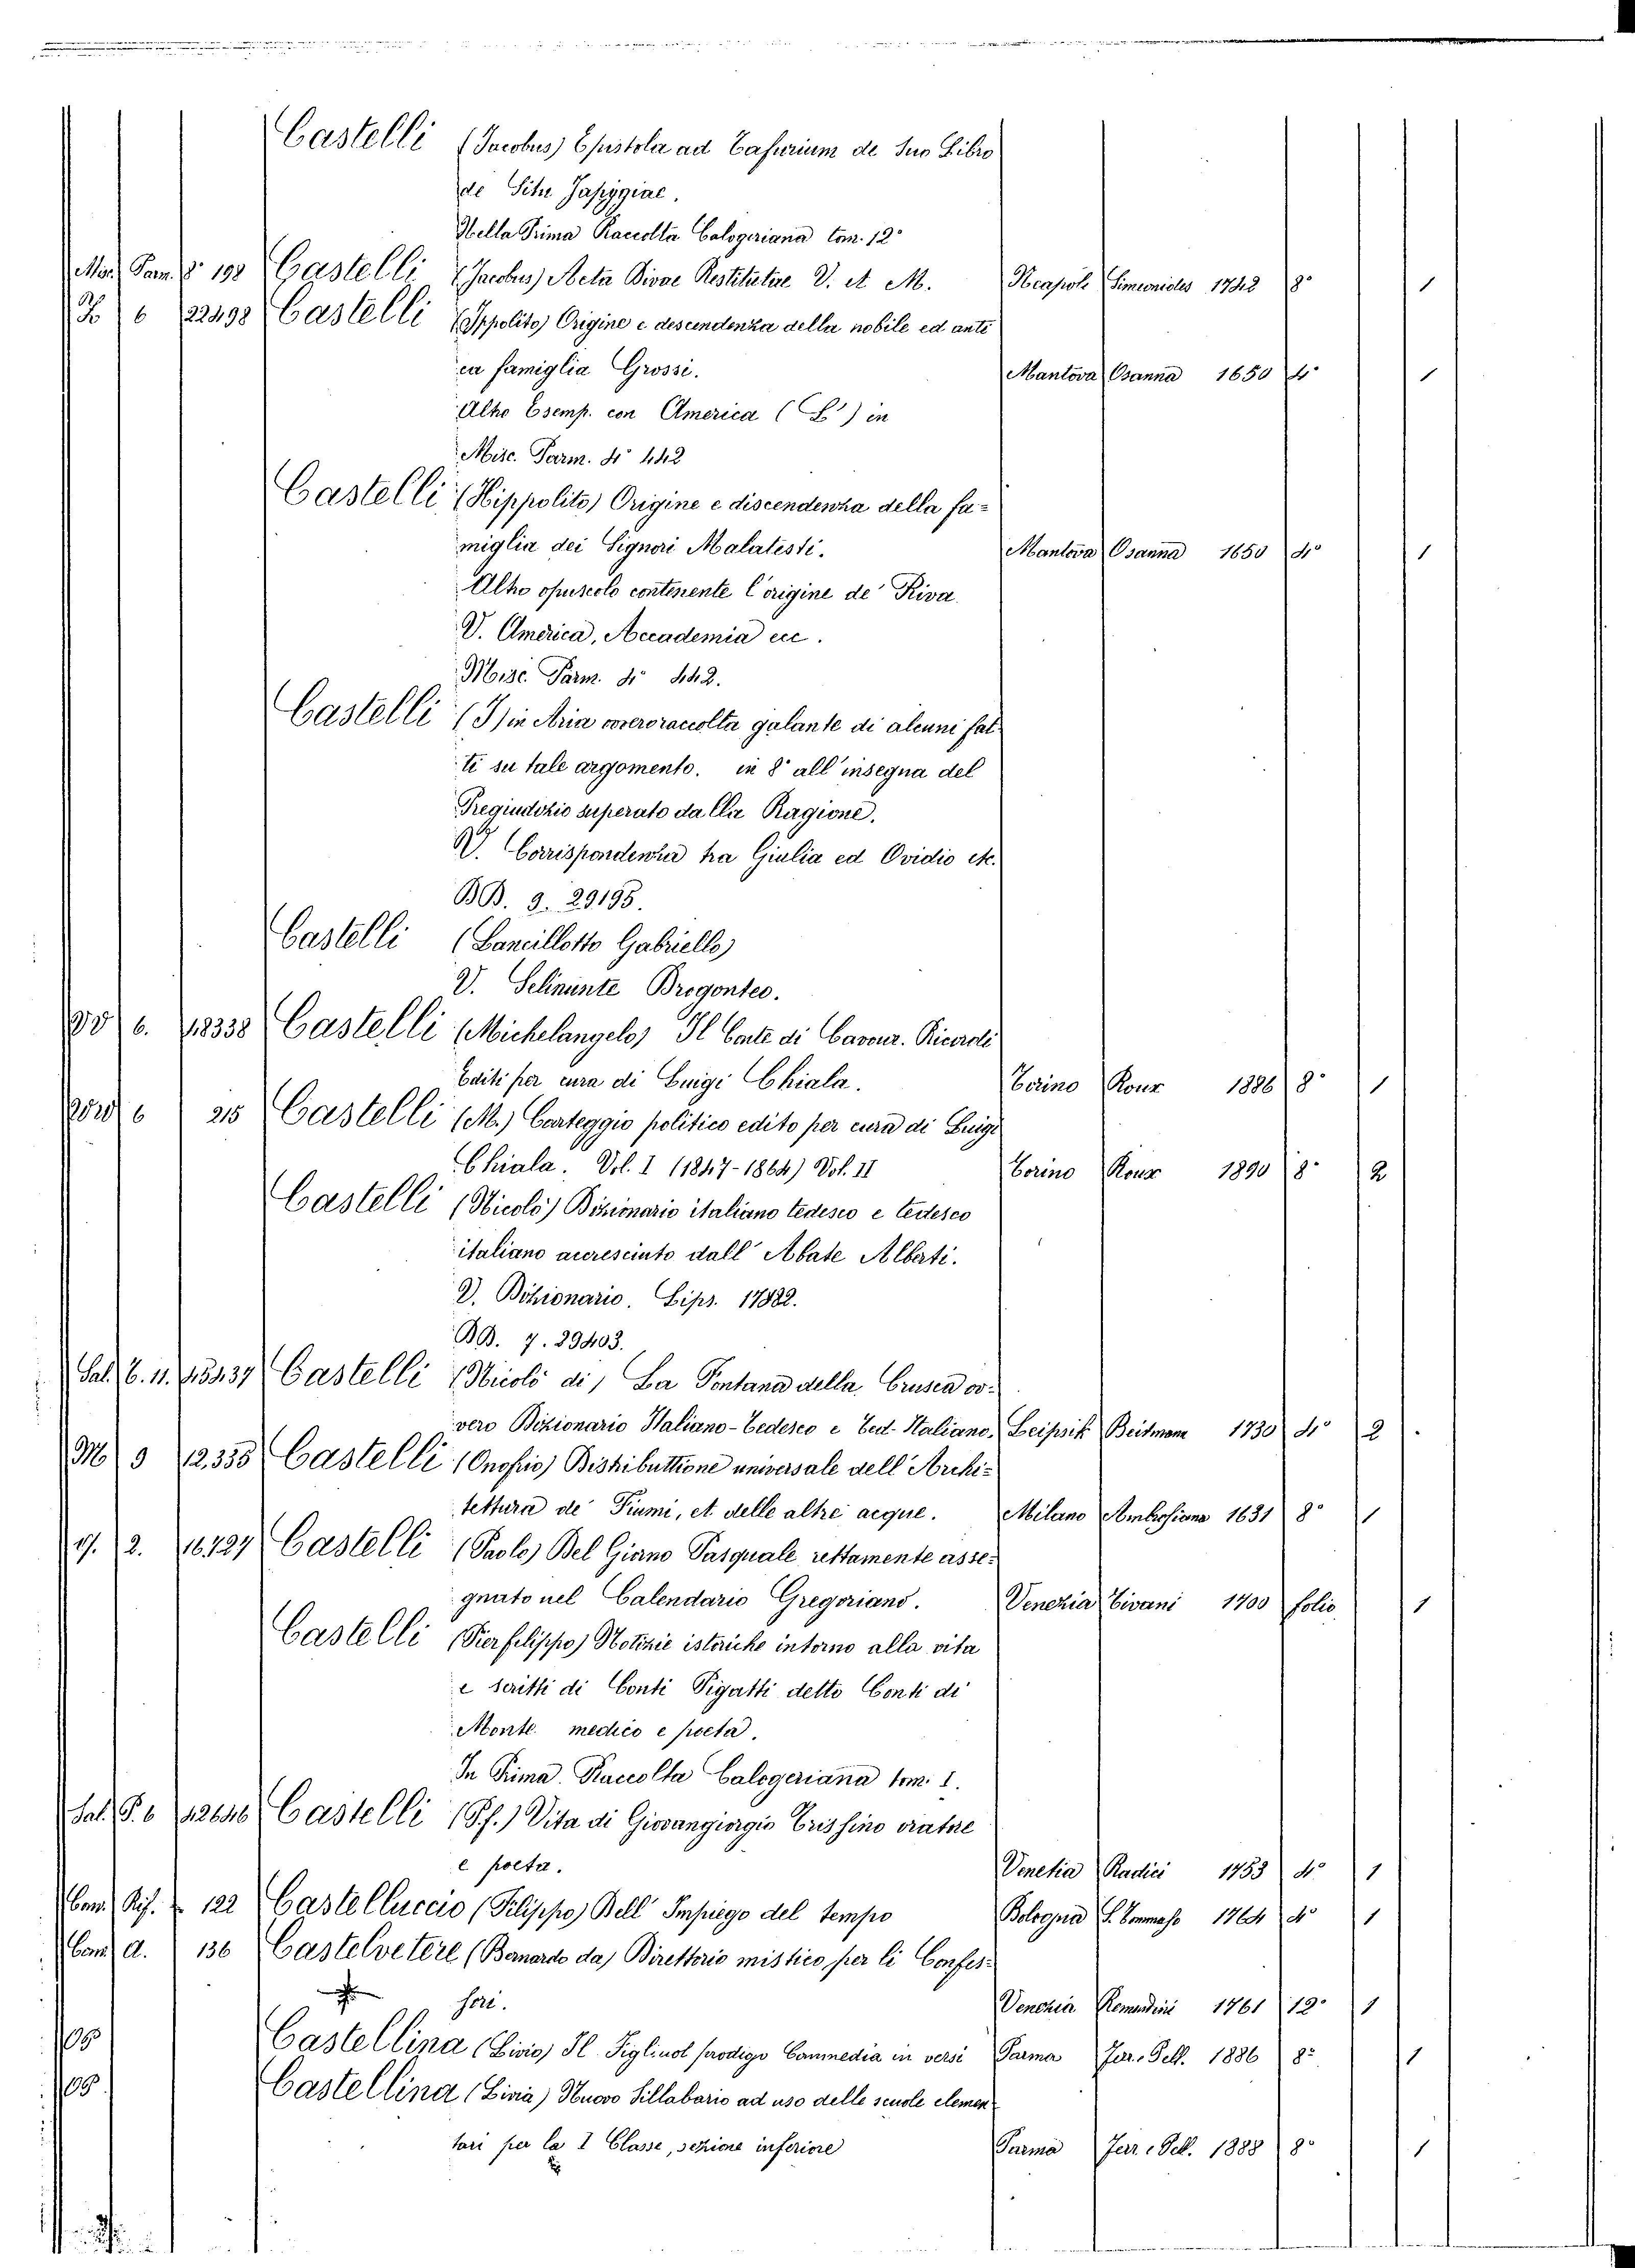 Castelli (Jacobus) Epistola ad Cafurium de Suo Libro
de Situ Japygiae.
Nella Prima Raccolta Calogeriana tom. 12°
Mor. Parm. 8° 198 Castelli (Jacobus) Acta Divae Restitutae V. et M. Neapoli Simonides 1742 8° 1
6 22498 Castelli (Ippolito) Origine e descendenza della nobile ed anti
ca famiglia Grossi. Mantova Osanna 1650 4° 1
Altro Esemp. con America (L') in
Misc. Parm. 4° 442
Castelli (Hippolito) Origine e discendenza della fa=
miglia dei Signori Malatesti. Mantova Osanna 1650 4° 1
Altro opuscolo contenente l'origine de' Riva
V. America, Accademia ecc.
Misc. Parm. 4° 442.
Castelli (I) in Aria ovvero raccolta galante di alcuni fat
ti su tale argomento. in 8° all'insegna del
Pregiudizio superato dalla Ragione.
V. Corrispondenza tra Giulia ed Ovidio etc.
BB. 9. 29195.
Castelli (Lancillotto Gabrielle)
V. Selinunte Drogonteo.
6. 18338 Castelli (Michelangelo) Il Conte di Cavour. Ricordi
Editi per cura di Luigi Chiala. Torino Roux 1886 8° 1
6 215 Castelli (M.) Carteggio politico edito per cura di Luigi
Chiala. Vol. I (1847-1864) Vol. II Torino Roux 1890 8° 2
Castelli (Nicolò) Dizionario italiano tedesco e tedesco
italiano accresciuto dall'Abate Alberti.
V. Dizionario. Lips. 1782.
BB. 7. 29403.
Sal. C. 11. 15437 Castelli (Nicolò di) La Fontana della Crusca ov=
vero Dizionario Italiano-Tedesco e Ted. Italiano. Leipsik 1730 4° 2
M 9 12,335 Castelli (Onofrio) Distributtione universale dell'Archi=
tettura de' Fiumi, et delle altre acque. Milano Ambrosiana 1631 8° 1
2. 16727 Castelli (Paolo) Del Giorno Pasquale rettamente asse=
gnato nel Calendario Gregoriano. Venezia Tivani 1700 folio 1
Castelli (Pierfilippo) Notizie istoriche intorno alla vita
e scritti di Conti Pigatti detto Conti di
Monte medico e poeta.
In Prima Raccolta Calogeriana tom. I.
Sal. P. 6 12646 Castelli (P.f.) Vita di Giovangiorgio Trissino oratore
e poeta. Venetia Radici 1753 4° 1
Cam. Rif. 122 Castelluccio (Filippo) Dell'Impiego del tempo Bologna S. Tommaso 1764 4° 1
Cam. A. 136 Castelvetere (Bernardo da) Direttorio mistico per li Confes=
sori. Venezia Remondini 1761 12° 1
Castellina (Livio) Il Figliuol prodigo Commedia in versi Parma Ferr. e Pell. 1886 8° 1
Castellina (Livia) Nuovo Sillabario ad uso delle scuole elemen
tari per la I Classe, sezione inferiore Parma Ferr. e Pell. 1888 8° 1